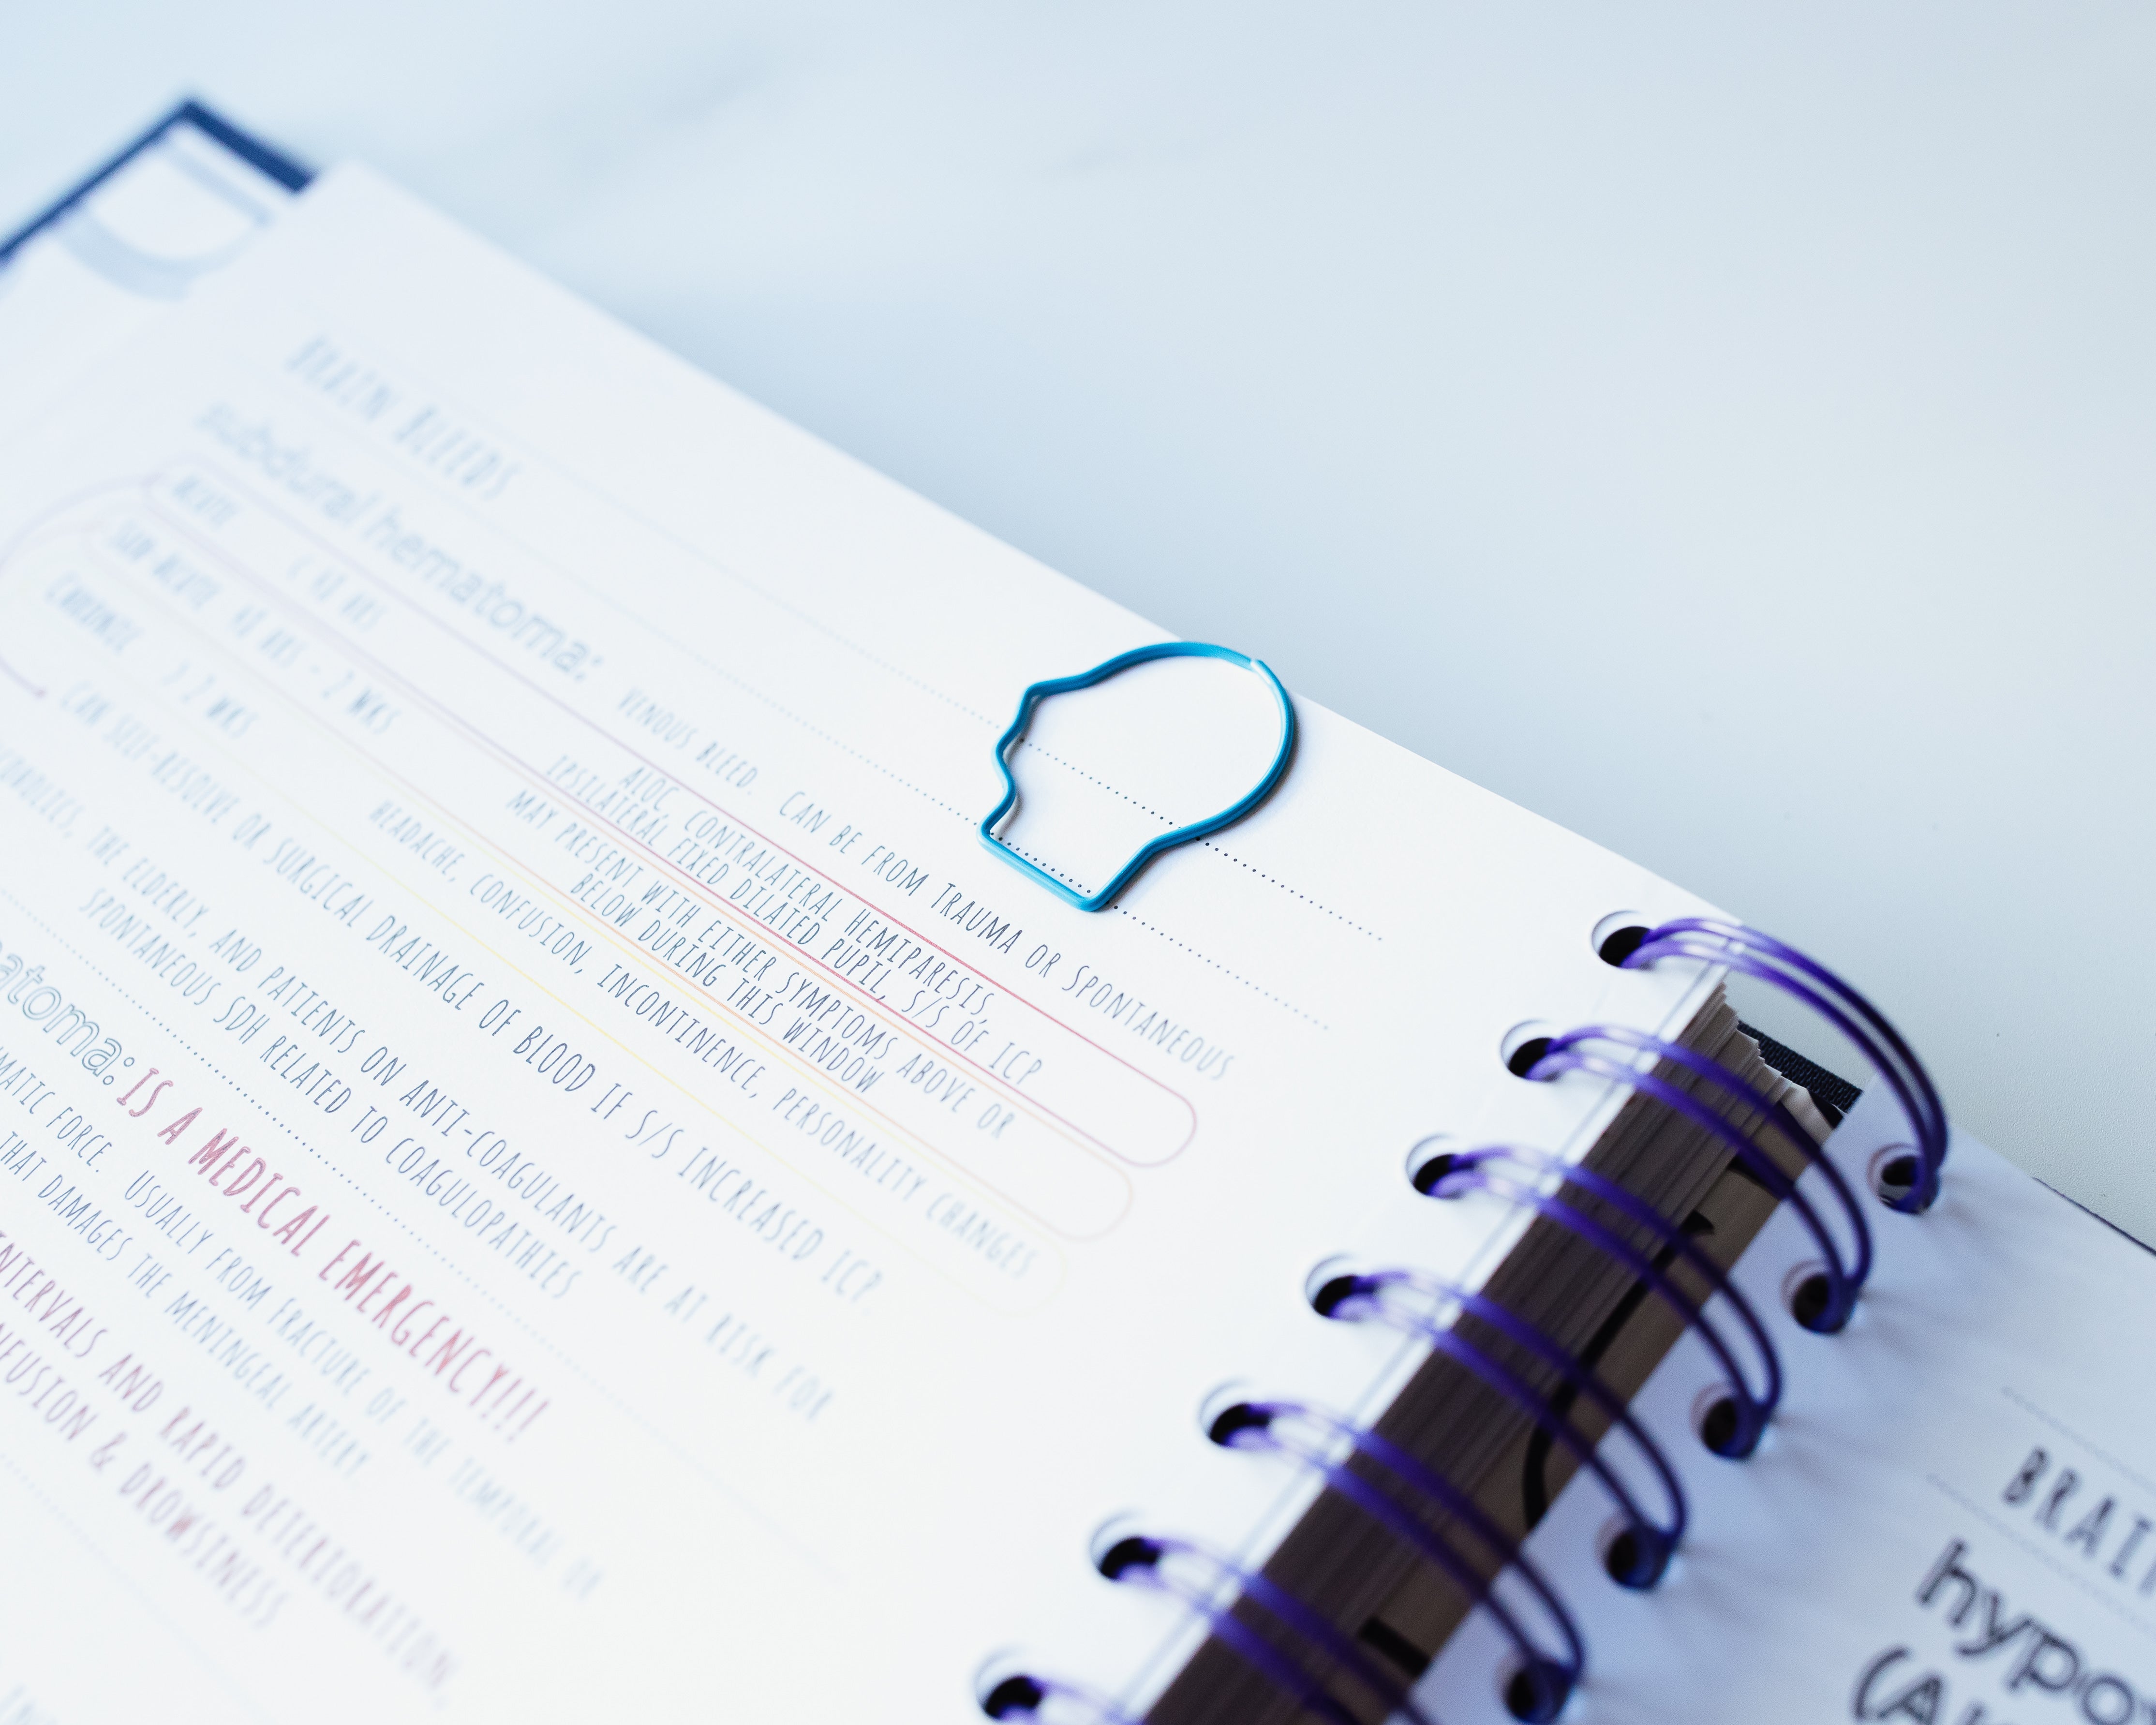 BRAIN BLEEDS
subdural hematoma: VENOUS BLEED. CAN BE FROM TRAUMA OR SPONTANEOUS
ACUTE < 48 HRS
ALOC, CONTRALATERAL HEMIPARESIS,
IPSILATERAL FIXED DILATED PUPIL, S/S OF ICP
SUB-ACUTE 48 HRS - 2 WKS
MAY PRESENT WITH EITHER SYMPTOMS ABOVE OR
BELOW DURING THIS WINDOW
CHRONIC > 2 WKS
HEADACHE, CONFUSION, INCONTINENCE, PERSONALITY CHANGES
CAN SELF-RESOLVE OR SURGICAL DRAINAGE OF BLOOD IF S/S INCREASED ICP.
THE ELDERLY, AND PATIENTS ON ANTI-COAGULANTS ARE AT RISK FOR
SPONTANEOUS SDH RELATED TO COAGULOPATHIES
atoma: IS A MEDICAL EMERGENCY!!!
MATIC FORCE. USUALLY FROM FRACTURE OF THE TEMPORAL OR
THAT DAMAGES THE MENINGEAL ARTERY.
NTERVALS AND RAPID DETERIORATION,
NFUSION & DROWSINESS
BRAI
hypo
(A